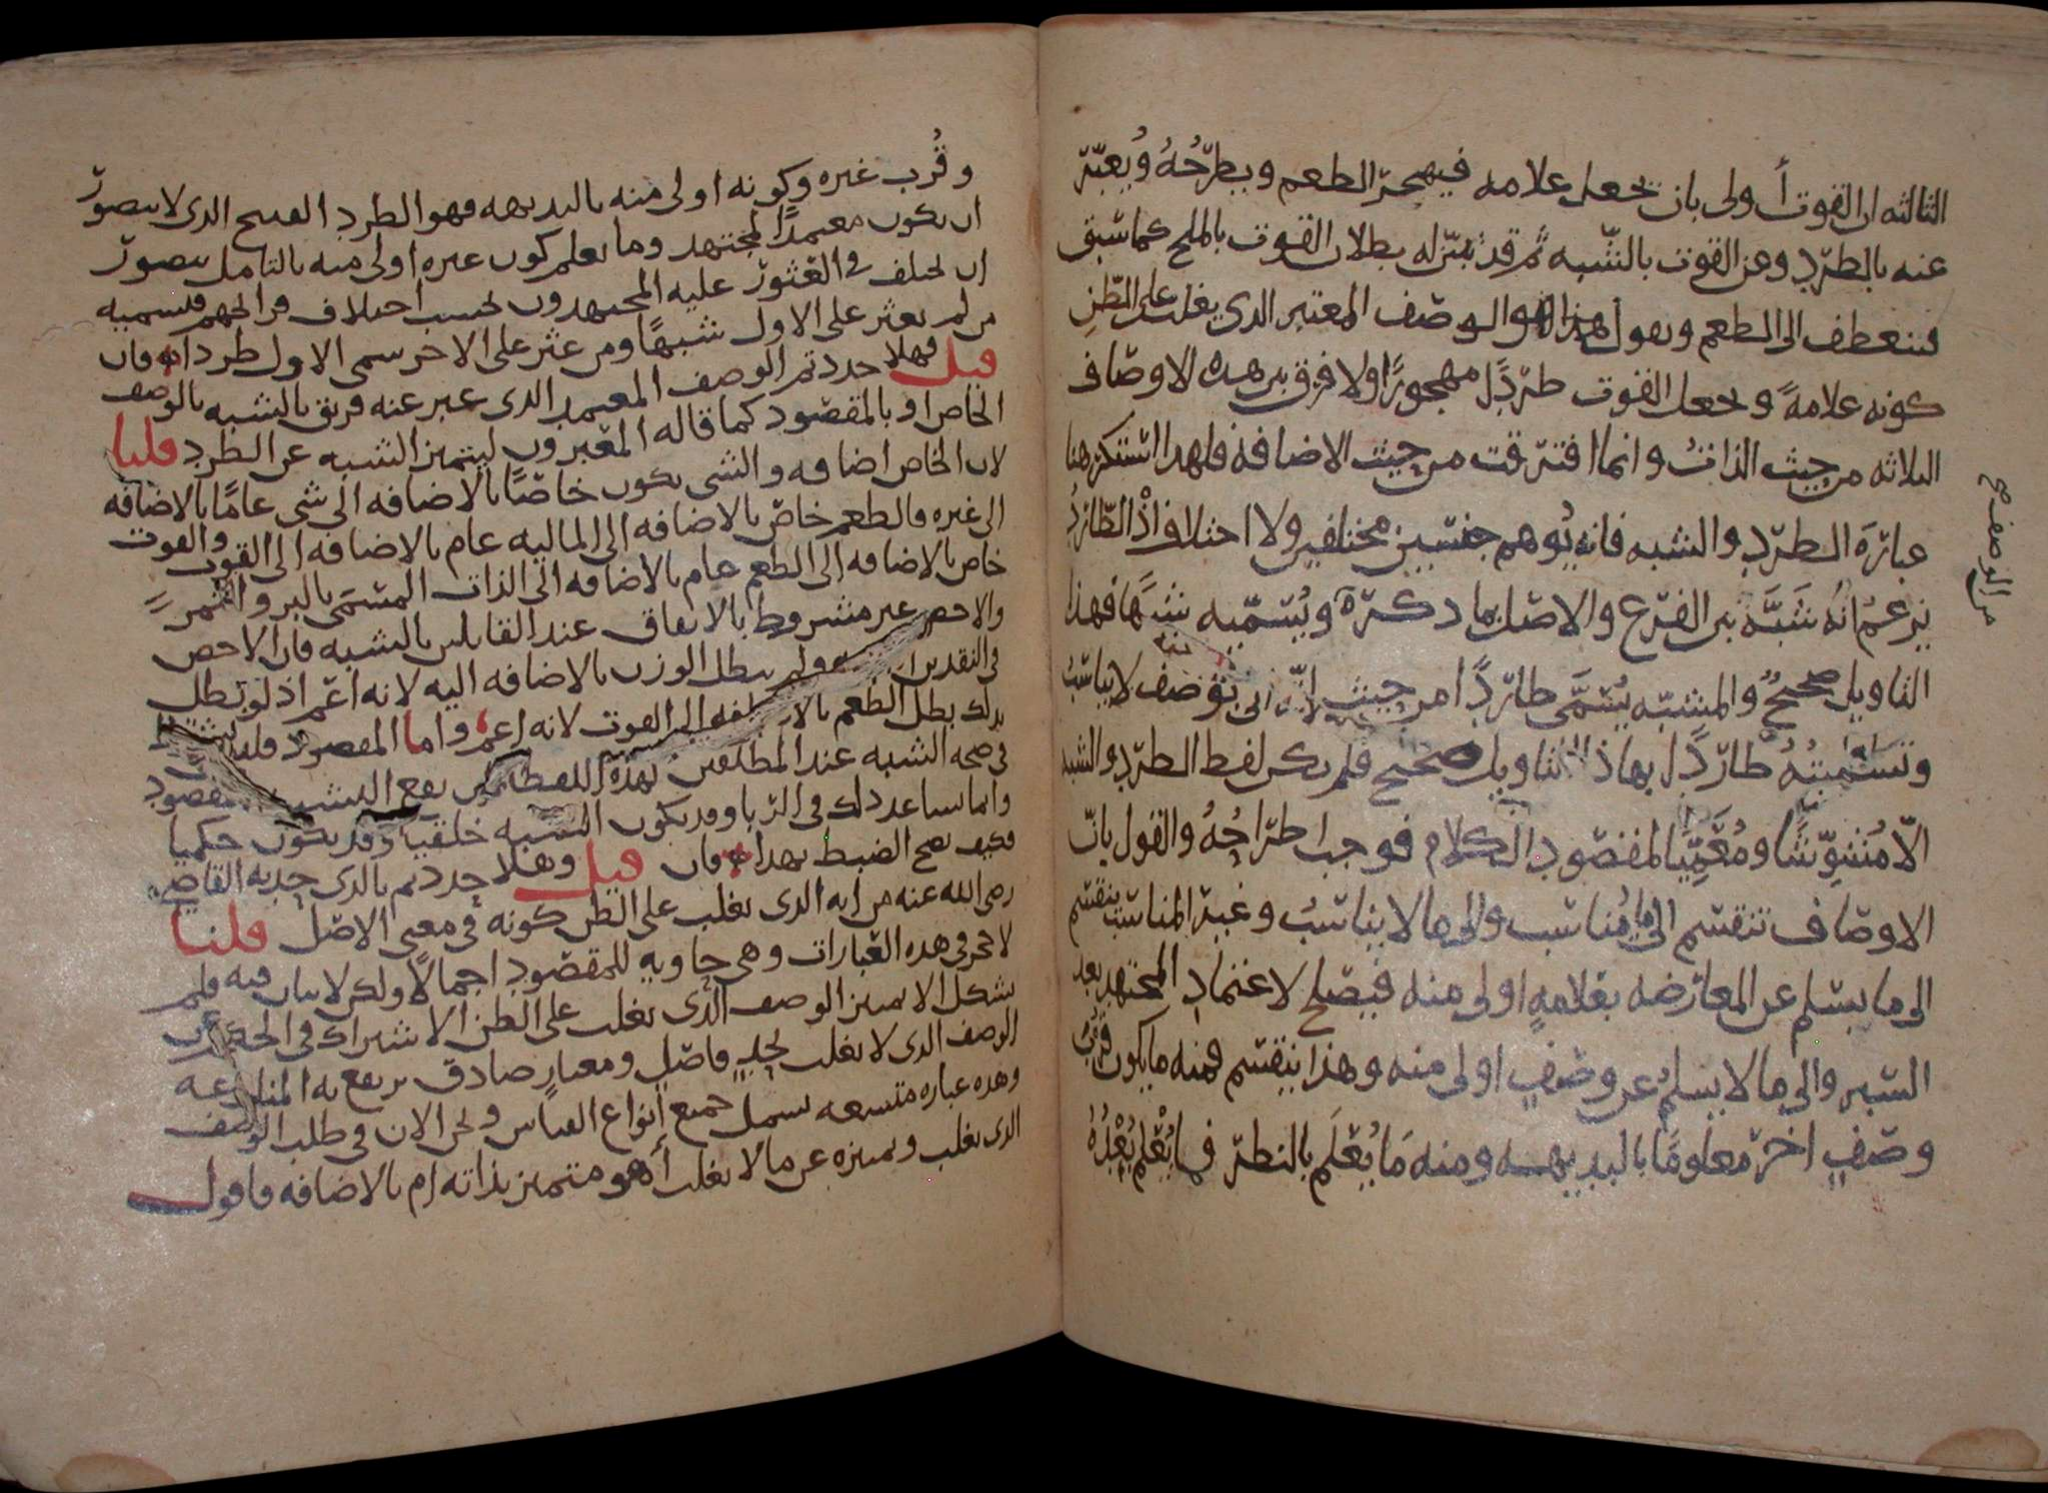 الثالثه ان القوت أولى بان تجعل علامه فيهجر الطعم ويطرحه ويعبر
عنه بالطرد وعن القوت بالشبه ثم قد يتبين له بطلان القوت بالملح كما سبق
فينعطف الى الطعم ويقول هذا هو الوصف المعتبر الذى يغلب على الظن
كونه علامة ويجعل القوت طردًا مهجورًا ولا فرق بين هذه الاوصاف
الثلاثه من حيث الذات وانما افترقت من حيث الاضافة فلهذا استنكرهنا
عبارة الطرد والشبه فانه يوهم جنسين مختلفين ولا اختلاف اذ الطارد
يزعم انه شبه بين الفرع والاصل بما ذكره ويسميه شبها فهذا
التاويل صحيح والمشبه يسمى طاردا من حيث انه اتى بوصف لا يناسب
وتسميته طاردا بهاذا التاويل صحيح فلم يكن لفظ الطرد والشبه
الا مشوشا ومعميا لمقصود الكلام فوجب اطراحه والقول بان
الاوصاف تنقسم الى ما يناسب والى ما لا يناسب وغير المناسب ينقسم
الى ما يسلم عن المعارضه بعلامة اولى منه فيصلح لاعتماد المجتهد بعد
السبر والى ما لا يسلم عن وصف اولى منه وهذا ينقسم فمنه ما يكون قرب
وصف اخر معلوما بالبديهه ومنه ما يعلم بالنظر فما يعلم بعده
من الوصف صح
وقرب غيره وكونه اولى منه بالبديهه فهو الطرد القبيح الذى لا يتصور
ان يكون معتمدًا لمجتهد وما يعلم كون غيره اولى منه بالتامل يتصور
ان يختلف فى العثور عليه المجتهدون بحسب اختلاف قرائحهم فيسميه
من لم يعثر على الاول شبهًا ومن عثر على الاخر سمى الاول طردا فان
قيل فهلا حددتم الوصف المعتمد الذى عبر عنه فريق بالشبه بالوصف
الخاص او بالمقصود كما قاله المعتبرون ليتميز الشبه عن الطرد قلنا
لان الخاص اضافه والشى يكون خاصًا بالاضافه الى شى عامًا بالاضافه
الى غيره فالطعم خاص بالاضافه الى الماليه عام بالاضافه الى القوت والقوت
خاص بالاضافه الى الطعم عام بالاضافه الى الذات المسمى بالبر والتمر
والاخص غير مشروط بالاتفاق عند القايلين بالشبه فان الاخص
فى النقدين ولم يبطل الوزن بالاضافه اليه لانه اعم اذ لو بطل
بذلك بطل الطعم بالاضافه الى القوت لانه اعم واما المقصود فليس
فى صحه الشبه عند المطلقين لهذه اللفظه ان يقع الشبه مقصود
وانما ساعد ذلك فى الربا وقد يكون الشبه خلقيا وقد يكون حكميا
فكيف يصح الضبط بهذا فان قيل وهلا حددتم بالذى حد به القاضى
رضى الله عنه من انه الذى يغلب على الظن كونه فى معنى الاصل قلنا
لا حجر فى هذه العبارات وهى حاويه للمقصود اجمالًا ولكن لا بيان فيه فلم
يشكل الا تمييز الوصف الذى يغلب على الظن الاشتراك فى الحكم عن
الوصف الذى لا يغلب بحد فاصل ومعيار صادق يرتفع به المنازعه
وهذه عباره متسعه تشمل جميع انواع القياس ونحن الان فى طلب الوصف
الذى يغلب وتميزه عن ما لا يغلب أهو متميز بذاته ام بالاضافه فاقول